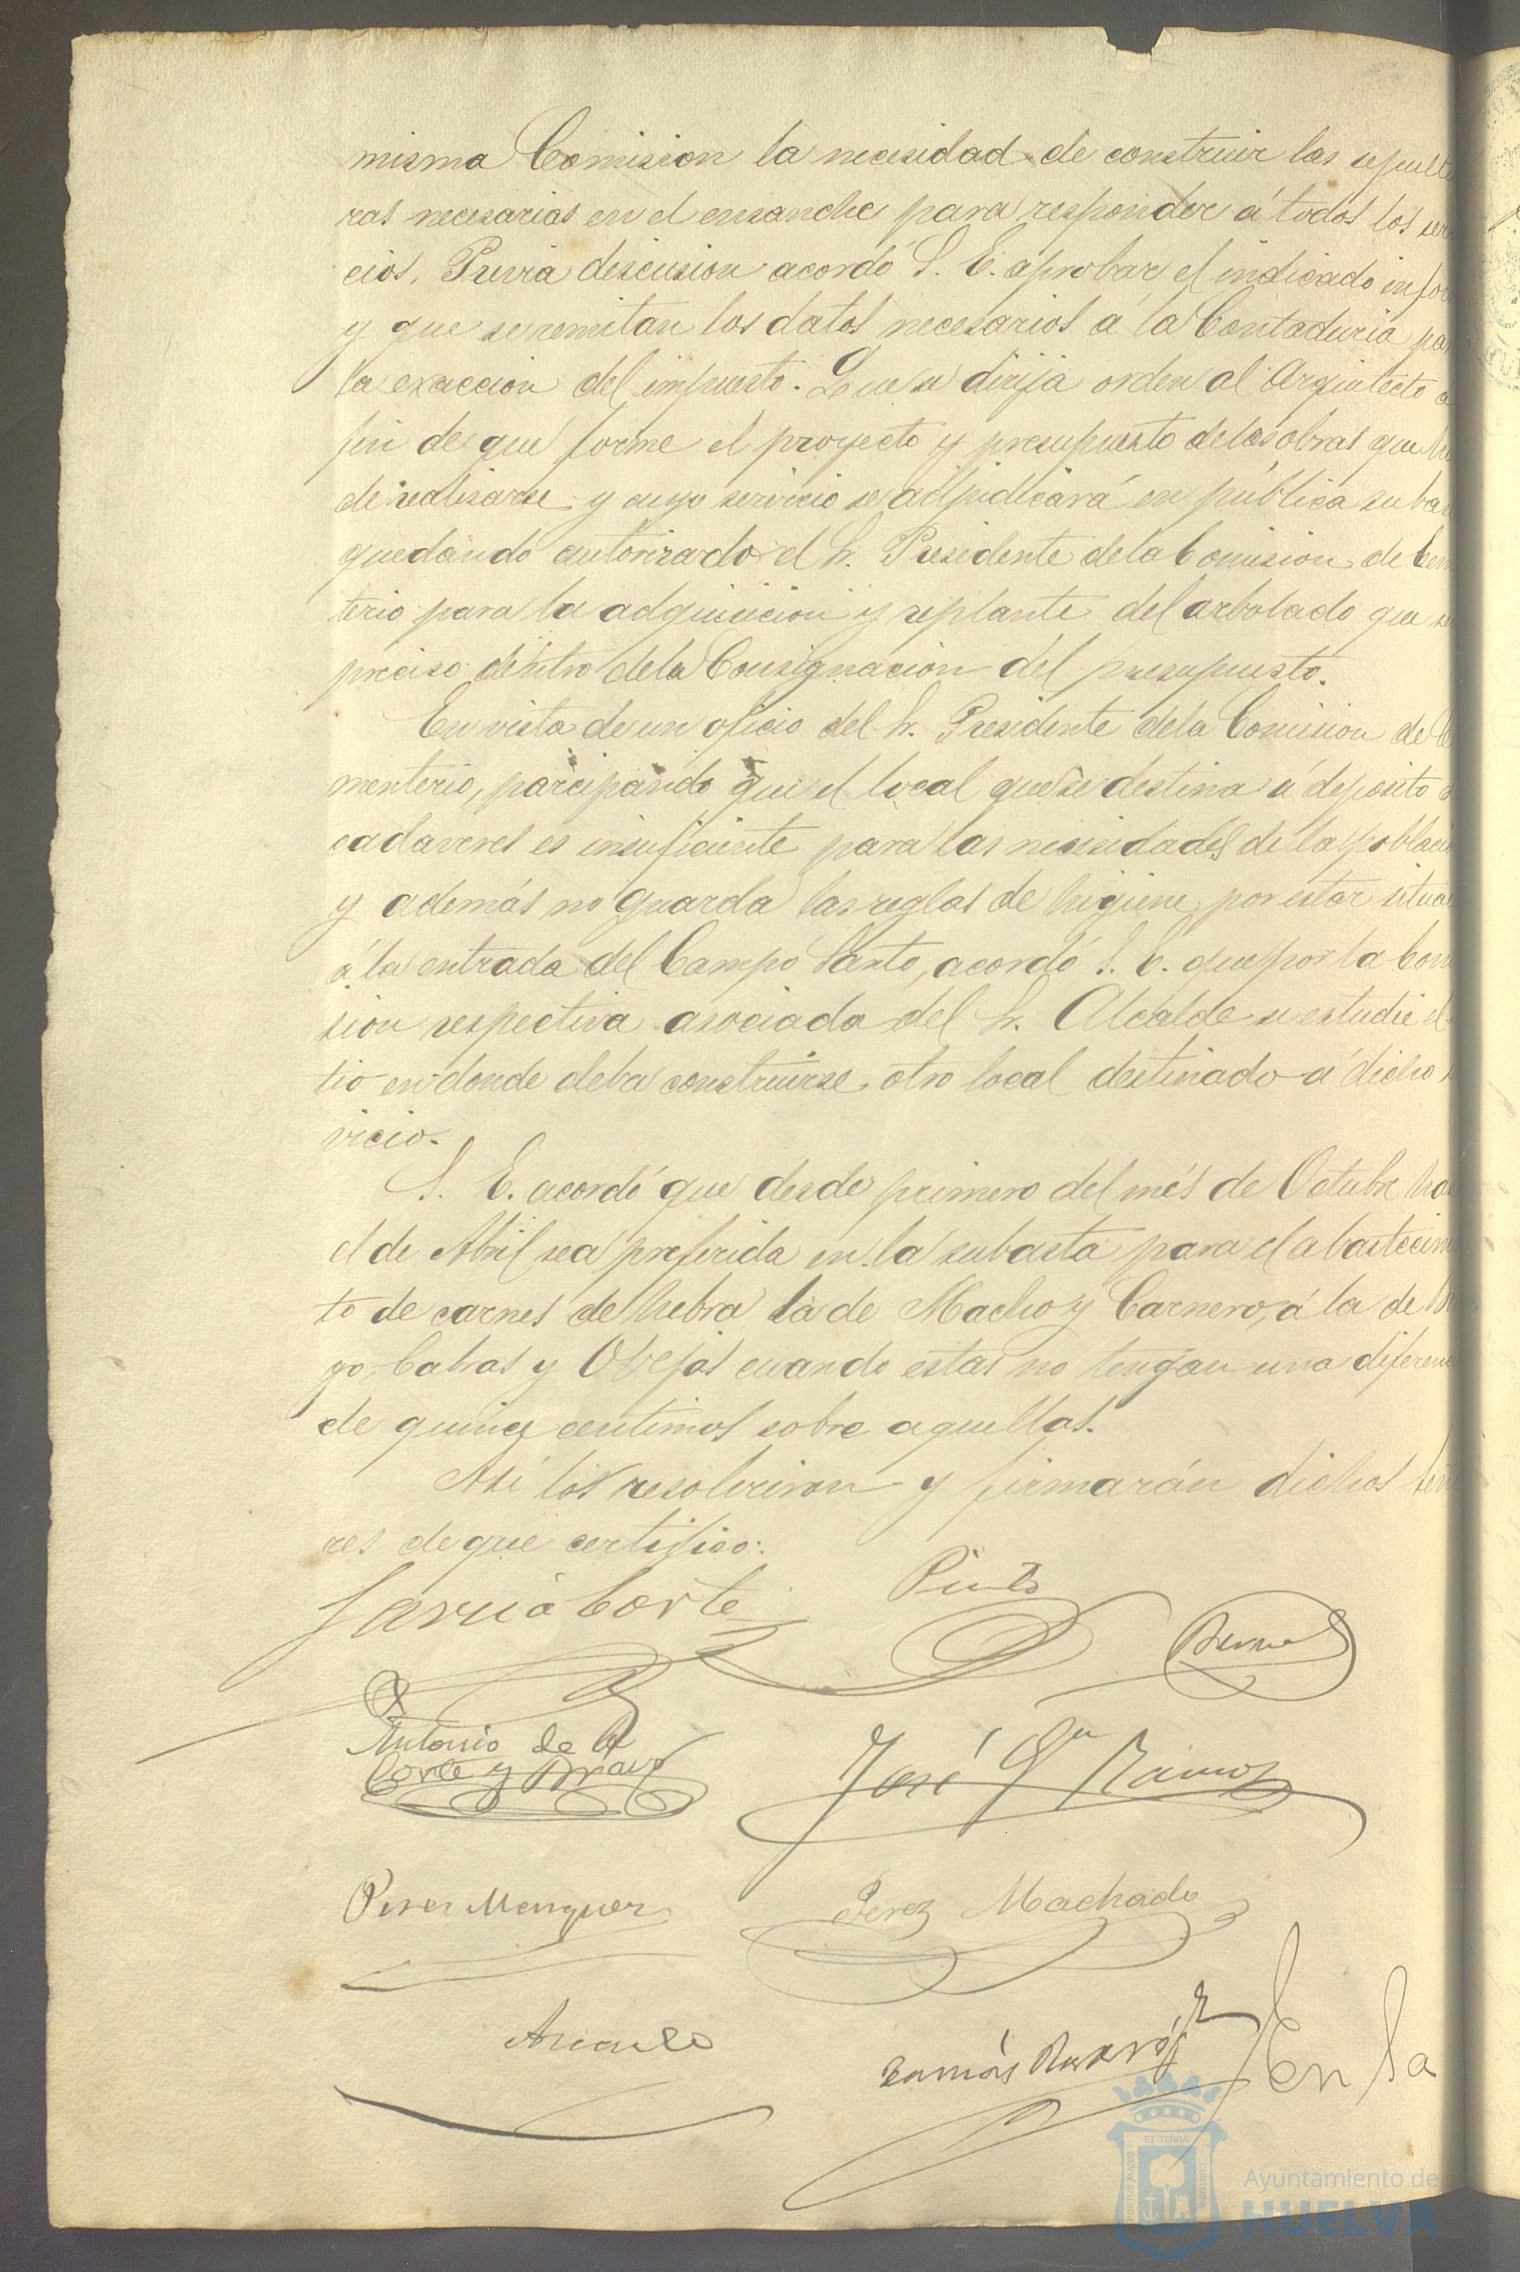 misma Comision la necesidad de construir las sepultu
ras necesarias en el ensanche para responder á todos los ser
cios. Previa discusion acordó S. E. aprobar el indicado infor
y que se remitan los datos necesarios á la Contaduria pa
la exaccion del impuesto. Que se dirija orden al Arquitecto a
fin de que forme el proyecto y presupuesto de las obras que h
de realisarse y cuyo servicio se adjudicará en pública suba
quedando autorizado el Sr. Presidente de la Comision de Cem
terio para la adquisicion y replante del arbolado que se
preciso dentro de la Consignacion del presupuesto.
En vista de un oficio del Sr. Presidente de la Comision de Ce
menterio, parcipando que el local que se destina á deposito d
cadaveres es insuficiente para las necesidades de la poblaci
y además no guarda las reglas de higiene, por estar situa
á la entrada del Campo Santo, acordó S. E. que por la Comi
sion respectiva asociada del Sr. Alcalde se estudie el
tio en donde deba construirse otro local destinado á dicho
vicio.
S. E. acordó que desde primero del més de Octubre ha
el de Abril sea preferida en la subasta para el abastecim
to de carnes de hebra la de Macho y Carnero, á la de
go, Cabras y Ovejas cuando estas no tengan una diferenc
de quince centimos sobre aquellas.
Asi los resolvieron y firmarán dichos Seño
res de que certifico.
Garcia Corte
Pinto
Bernal
Antonio de la
Corte y Bravo
José Gn Ramos
Perez Menguer
Perez Machado
En la
ET TERRÆ
PORTUS MARIS
CUSTODIA
Ayuntamiento de
HUELVA